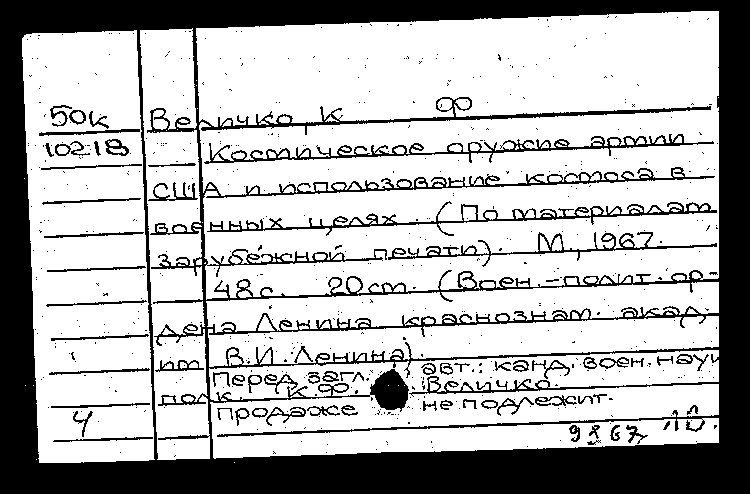 50к Величко, К Ф
10218 Костическое оружие артии
США и использование костоса в
военных целях. (По татериалат
зарубежной печати). М., 1967.
48с. 20ст. (Воен.-полит. ор-
дена Ленина краснознат. акад.
ит В.И. Ленина).
Перед загл. авт.: канд. воен. наук
полк. К.Ф. Величко.
4 продаже не подлежит.
9867